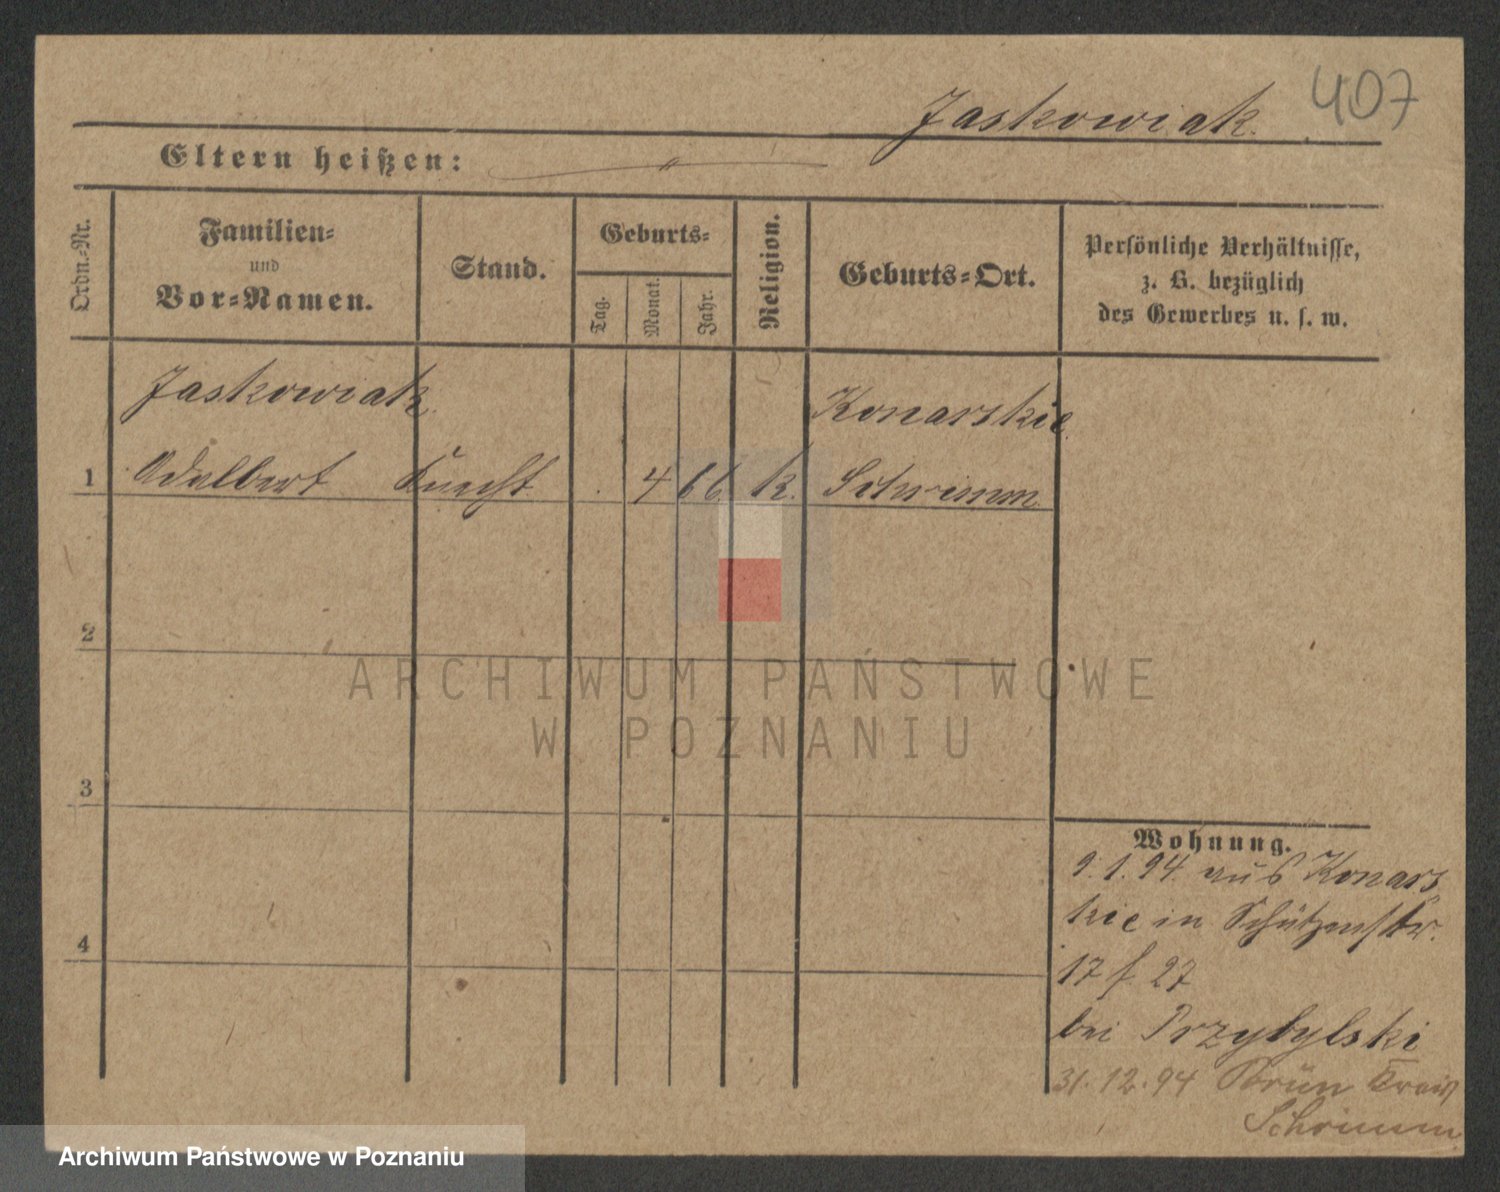 407
Jaskowiak.
Eltern heißen:
Ordn.-Nr.
Familien-
und
Vor-Namen.
Stand.
Geburts-
Tag.
Monat.
Jahr.
Religion.
Geburts-Ort.
Persönliche Verhältnisse,
z. B. bezüglich
des Gewerbes u. s. w.
Jaskowiak
Konarskie
1 Adalbert Knecht 4 66 k. Schrimm
2
3
4
Wohnung.
9.1.94 aus Konars
kie in Schützenstr.
17 f. 27
bei Przybylski
31.12.94 Kreis
Schrimm
ARCHIWUM PAŃSTWOWE
W POZNANIU
Archiwum Państwowe w Poznaniu